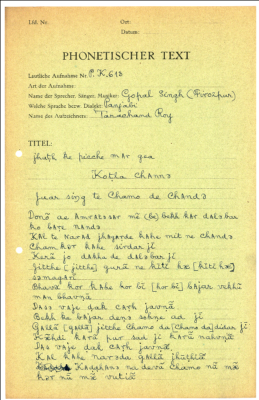 Lfd. Nr.
Ort:
Datum:
PHONETISCHER TEXT
Leufliche Aufnahme Nr. P.K. 613
Art der Aufnahme:
Name der Sprecher, Sänger, Musiker: Gopal Singh (Firozpur)
Welche Sprache bezw. Dialekt: Panjabi
Name des Aufzeichners: Tarachand Roy
TITEL:
jhath ke picche mar gea
Kotha channa
juar sing te Chamo de Chands
Donā ae Amratsar mē (be) bekh kar dalabar
ho bare nands
Kal te karad jhagande kahe mit ne chands
Cham kor kahe sirdar jī
Kanā jo dakhe de dalsbar jī
Jitthe [jitthe] gunā ne kītī hæ [kītī hæ]
samagarī
Bhavā hor kahe hor bī [hor bī] bajar vikhū
man bhavnā
Dass vaje dak carh javnā
Bekh ke bajar dens sohne aa jī
Gallā [gallā] jitthe Chamo da [Chamo da] didar jī
Kæhdī karū pur sid jī karū nahvnā
Das vaje dak carh javnā
Kal kahe navsdu gallā jhuthīā
Kaddhans nei devā Chamo nū mæ
kor nū mæ vutīā